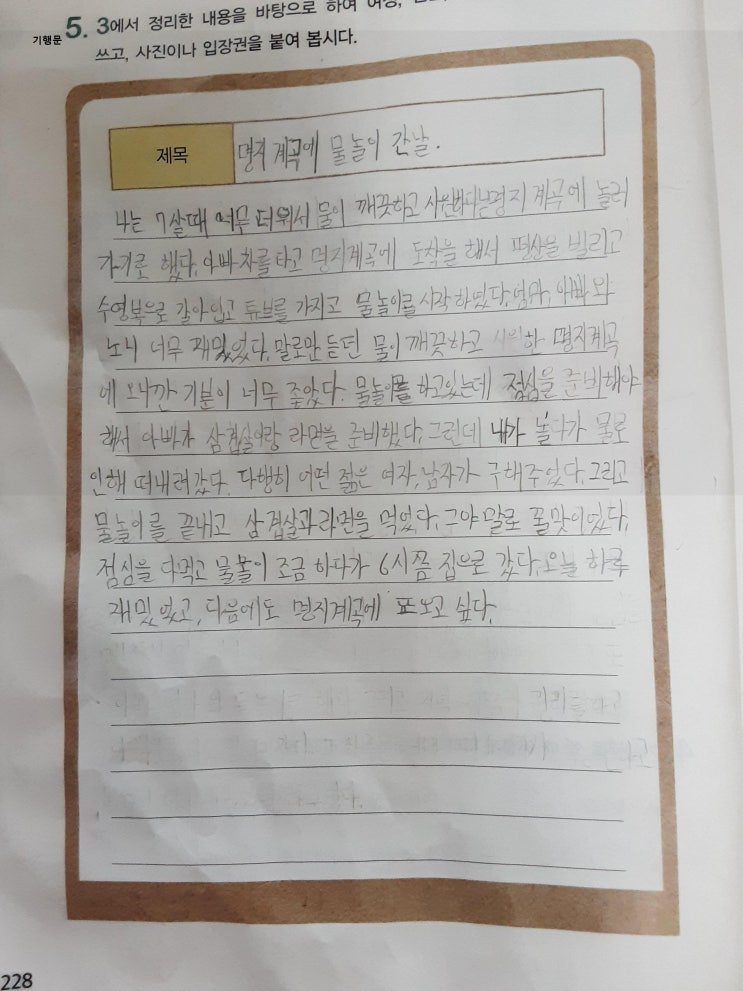 기행문 5. 3에서 정리한 내용을 바탕으로 하여 여정,
쓰고, 사진이나 입장권을 붙여 봅시다.
제목 명지 계곡에 물놀이 간날.
나는 7살때 너무 더워서 물이 깨끗하고 시원하다는 명지 계곡에 놀러
가기로 했다. 아빠 차를 타고 명지계곡에 도착을 해서 평상을 빌리고
수영복으로 갈아입고 튜브를 가지고 물놀이를 시작하였다. 엄마, 아빠와
노니 너무 재밌었다. 말로만 듣던 물이 깨끗하고 시원한 명지계곡
에 오니깐 기분이 너무 좋았다. 물놀이를 하고있는데 점심을 준비해야
해서 아빠가 삼겹살이랑 라면을 준비했다. 그런데 내가 놀다가 물로
인해 떠내려갔다. 다행히 어떤 젊은 여자, 남자가 구해주었다. 그리고
물놀이를 끝내고 삼겹살과 라면을 먹었다. 그야말로 꿀맛이었다.
점심을 다먹고 물놀이 조금 하다가 6시쯤 집으로 갔다. 오늘 하루
재밌었고, 다음에도 명지계곡에 또 오고 싶다.
228